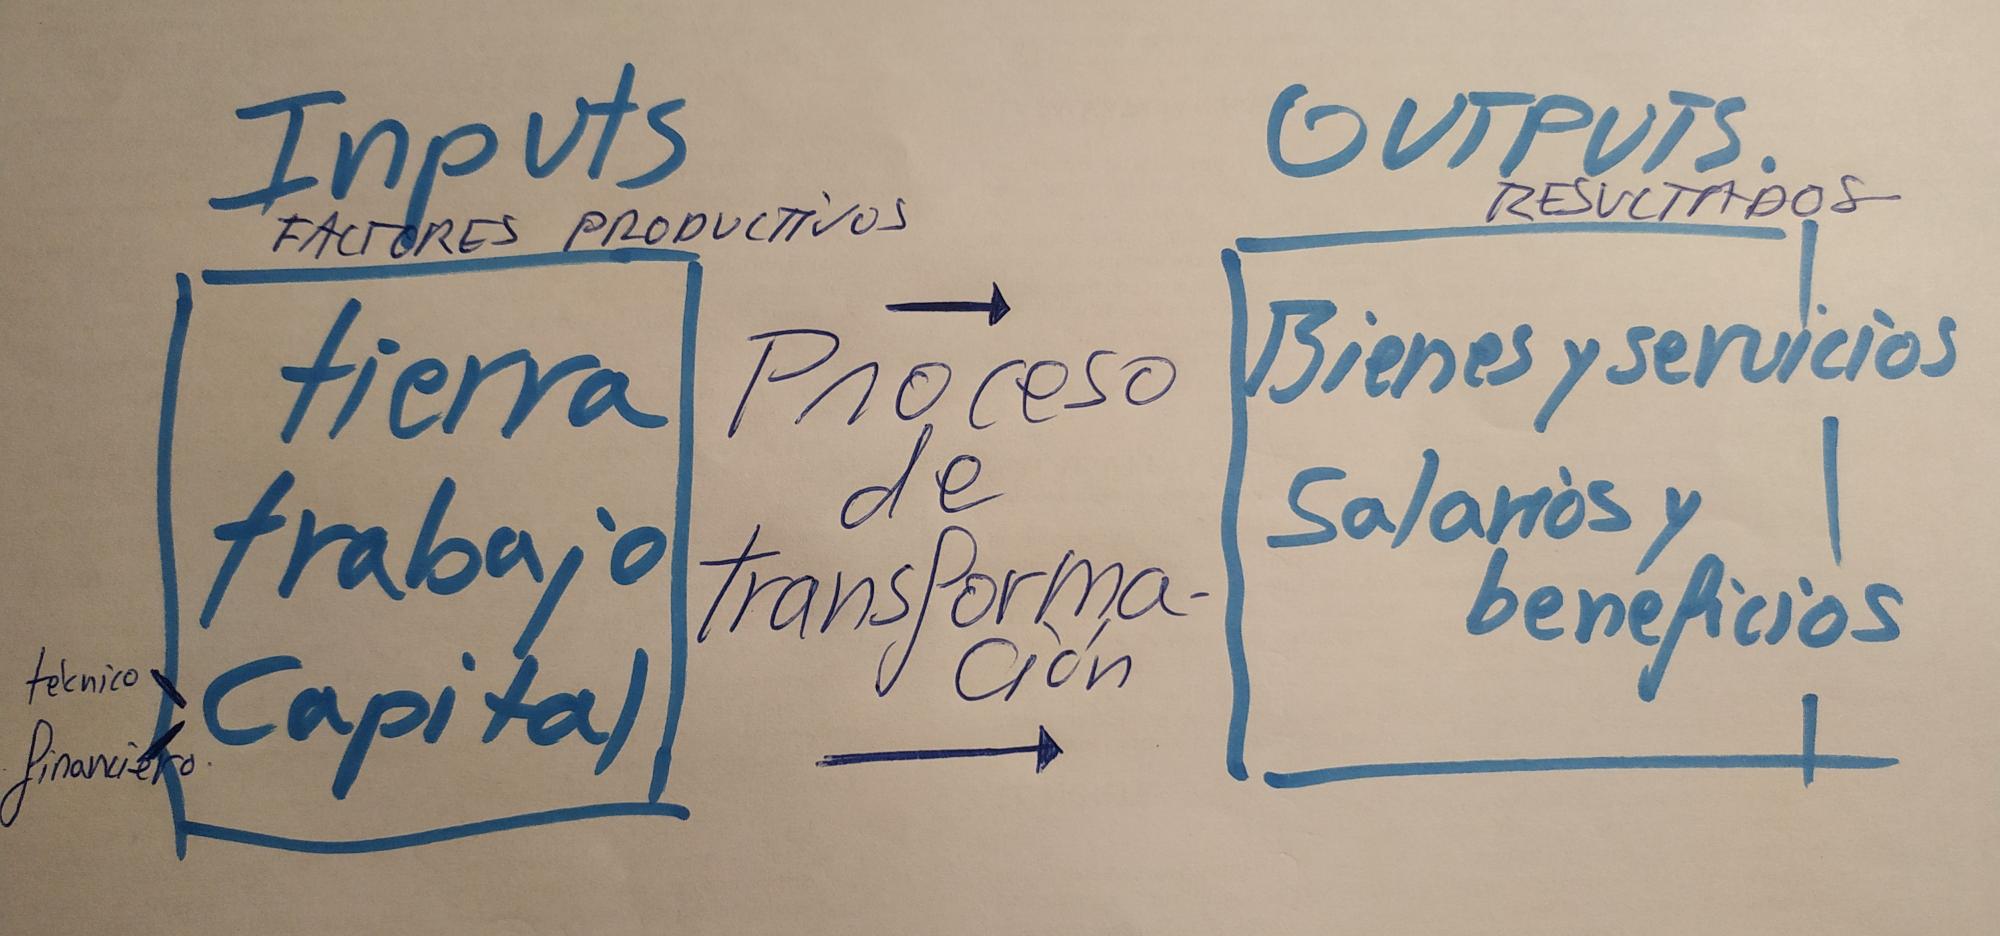 Inputs
FACTORES PRODUCTIVOS
tierra
trabajo
Capital
teknico
financiero.
Proceso
de
transforma-
ción
OUTPUTS.
RESULTADOS
Bienes y servicios
Salarios y
beneficios